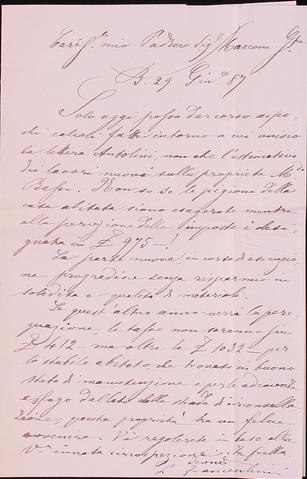 Cariss.º mio Padrone Sig.r Marconi
B. 29 Giu.º 87
Solo oggi posso dar corso ai po-
chi calcoli fatti intorno a cui
la lettera Antolini, non che l'estimativo
dei lavori nuovi sulla proprietà
Non so se le pigioni della
casa abitata siano esagerate mentre
alla percezione delle imposte è desi-
gnata in £ 975 — !
La parte nuova in corso di esecuzio-
ne progredisce senza risparmio in
solidità e qualità di materiali.
Se quest'altro anno verrà la pere-
quazione, le tasse non saranno più
£ 412 ma oltre le £ 1032 — per
lo stabile abitato, che trovasi in buono
stato di manutenzione e per le adiacenze
e sfogo dal lato della strada di circonvalla-
zione, questa proprietà ha un felice
avvenire. Vi regolerete in base alla
V.a innata circospezione. In fretta